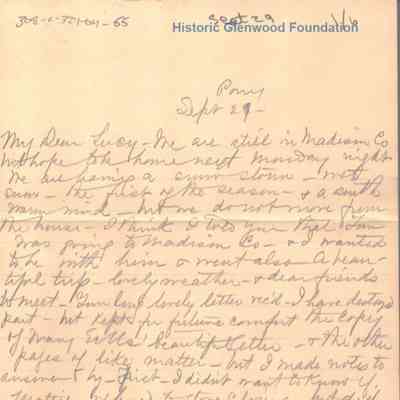 308-2-721-04-65
Sept 29
Historic Glenwood Foundation
Sept 29-
My Dear Lucy - We are still in Madison Co
but hope to be home next Monday night
We are having a snow storm - wet
snow - the first of the season - & a south
warm wind - but we do not move from
the house - I think I told you that
was going to Madison Co - & I wanted
to be with him & went also - A beau-
tiful trip - lovely weather - & dear friends
to meet - Your long lovely letter rec'd - I have destroyed
part - but kept for future comfort the copy
of Mary beautiful letter - & the other
pages of like matter - but I made notes to
answer by - first - I didn't want to know if